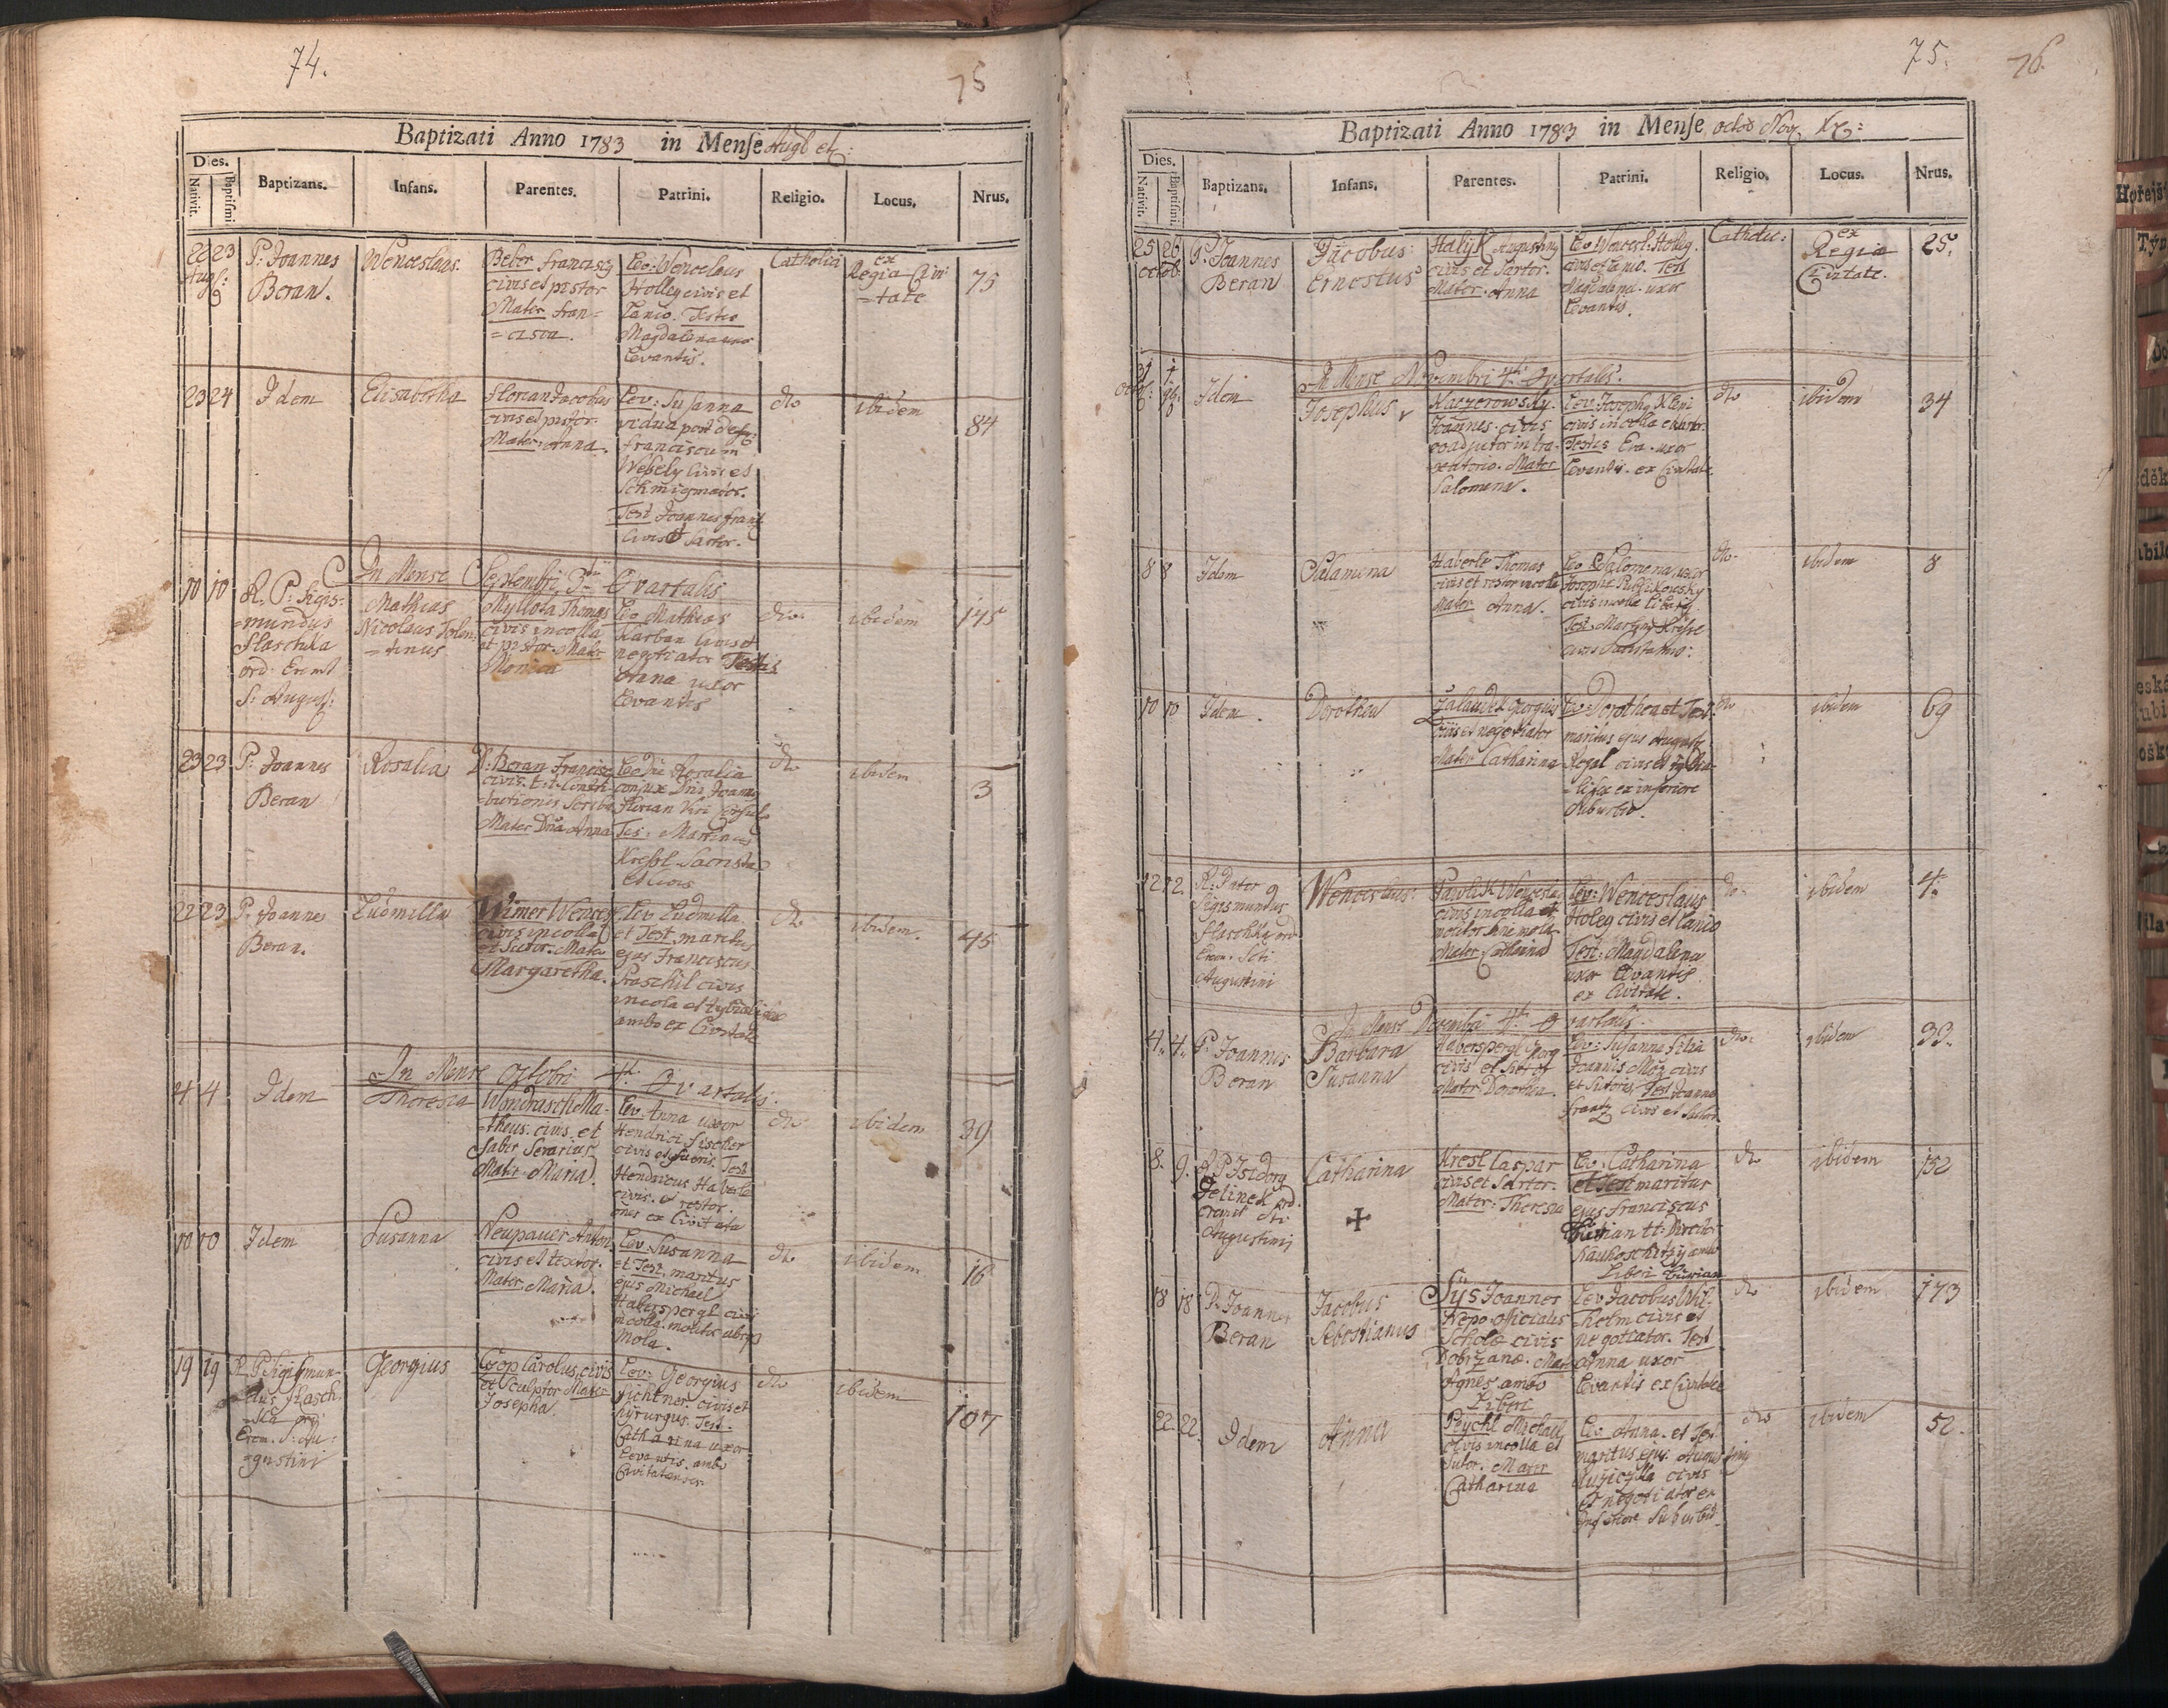 74.
75
Baptizati Anno 1783 in Mense Augl et:
Dies.
Nativit.
Baptismi
Baptizans.
Infans.
Parentes.
Patrini.
Religio.
Locus.
Nrus.
22 23
Augl:
P: Joannes
Beran.
Wenceslaus.
Beber Francisg
civis et pistor
Mater Fran=
=cisca.
Lev: Wenceslaus
Holleg civis et
Lanio. Testis
Magdalena uxor
Levantis.
Catholica
ex
Regia Civi
=tate
75
23 24
Idem
Elisabetha
Florian Jacobus
civis et pistor.
Mater: Anna.
Lev: Susanna
vidua post def:
Franciscum
Webely Civis et
Schmigmator.
Test Joannes Frantz
Civis et Sartor.
dto
ibidem
84
In Mense Septembri 3tii Qvartalis
10 10
R. P: Sigis:
=mundus
Flaschka
ord: Eremt
S: August:
Mathias
Nicolaus Tolen
=tinus
Myllota Thomas
civis incolla
et pistor. Mater
Monica
Lev Mathias
Karban civis et
negotiator Testis
Anna uxor
Levantis
dto
ibidem
175
23 23
P: Joannes
Beran
Rosalia
D: Beran Francisc
civis. t: t: Contri-
butionis Scriba
Mater Dna Anna
Lev Dna Rosalia
conjux Dni Joannis
Florian Viri Consul
Tes: Martinus
Kressl Sacrista
et civis
dto
ibidem
3
22 23
P: Joannes
Beran.
Ludmilla
Wimer Wences
civis incolla
et Sutor. Mater
Margaretha.
Lev Ludmilla.
et Test maritus
ejus Franciscus
Praschil civis
incola et
ambo ex Civitate
dto
ibidem.
45
In Mense Octobri 4ti Qvartalis.
4 4
Idem
Theresia
Wondrasch Ma-
theus. civis et
Faber Serarius
Mater: Maria.
Lev: Anna uxor
Hendrici Fischer
civis et Test
Hendricus Haberle
civis. et restor.
omes ex Civitate
dto
ibidem
39
10 10
Idem
Susanna
Neupauer Anton
civis et textor.
Mater. Maria.
Lev: Susanna
et Test. maritus
ejus Michael
Haberspergl civis
incolla. molitor
Mola.
dto
ibidem
16
19 19
R. P Sigismun-
dus Flasch-
ka ord
Erem. S: Au:
=gustini
Georgius
Coop Carolus, civis
et Sculptor Mater
Josepha.
Lev: Georgius
Fichtner. civis et
hyrurgus. Test.
Catharina uxor
Levantis. ambo
Civitatenses.
dto
ibidem
107
75.
76.
Baptizati Anno 1783 in Mense octob Nov. Xb:
Dies.
Nativit.
Baptismi.
Baptizans.
Infans.
Parentes.
Patrini.
Religio.
Locus.
Nrus.
25 26
octob.
P: Joannes
Beran
Jacobus
Ernestus
Halyk Augusting
civis et Sartor.
Mater. Anna
Lev Wencesl. Holeg.
civis et Lanio. Test
Magdalena. uxor
Levantis.
Catholic:
ex
Regia
Civitate.
25.
In Mense Novembri 4ti Qvartalis.
31 1
Idem
Josephus
Kaczerowsky
Joannes. civis
coadjutor in bra-
xatorio. Mater
Salomena.
Lev. Joseph Kleni
civis incolla
Testis Eva. uxor
Levantis. ex Civitate.
dto
ibidem
34
8 8
Idem
Salamena
Haberle Thomas
civis et restor incola
Mater Anna.
Lev Salomena, uxor
Josephi
civis incolae
Test. Marting Kresse
civis
dto
ibidem
8
10 10
Idem.
Dorothea
Zalaudek Georgius
civis et negotiator
Mater Catharina
Lev: Dorothea et Test:
maritus ejus August
Rogal civis et
ex inferiore
Suburbio.
dto
ibidem
69
12 12.
R: Pater
Sigismundus
Flaschka ord
Erem. Scti
Augustini
Wenceslaus.
Pawlik Wencesla.
civis incolla et
molitor
Mater: Catharina
Lev: Wenceslaus
Holeg civis et Lanio
Test: Magdalena
uxor Levantis.
ex Civitate.
dto
ibidem
4.
In Mense Decembri 4ti Qvartalis.
4. 4.
P: Joannes
Beran
Barbara
Susanna
Haberspergl Georg
civis et
Mater. Dorothea.
Lev: Susanna filia
Joannis Máz civis
et Sutoris. Test Joannes
Frantz civis et Sartor.
dto
ibidem
33.
8. 9.
R P Isidorg
Jelinek ord.
eremit Sti
Augustini
Catharina
✝
Kresl Caspar
civis et Sartor.
Mater: Theresia
Lev: Catharina
et Test maritus
ejus Franciscus
Burian tt: Direct:
ambo
Liberi Burian
dto
ibidem
152
18 18
P: Joannes
Beran
Jacobus
Sebastianus
Sys Joannes
Repo officialis
Scholae civis
Dobrzanae. Mat
Agnes ambo
Liberi
Lev Jacobus Wil-
helm civis et
negotiator. Test
Anna uxor
Levantis ex Civitate
dto
ibidem
173
22. 22.
Idem
Anna
Peychl Michael
civis incolla et
Sutor. Mater
Catharina
Lev Anna. et Test
maritus ejus. Augusting
Ružiczka civis
et negotiator ex
Inferiore Suburbio
dto
ibidem
52.